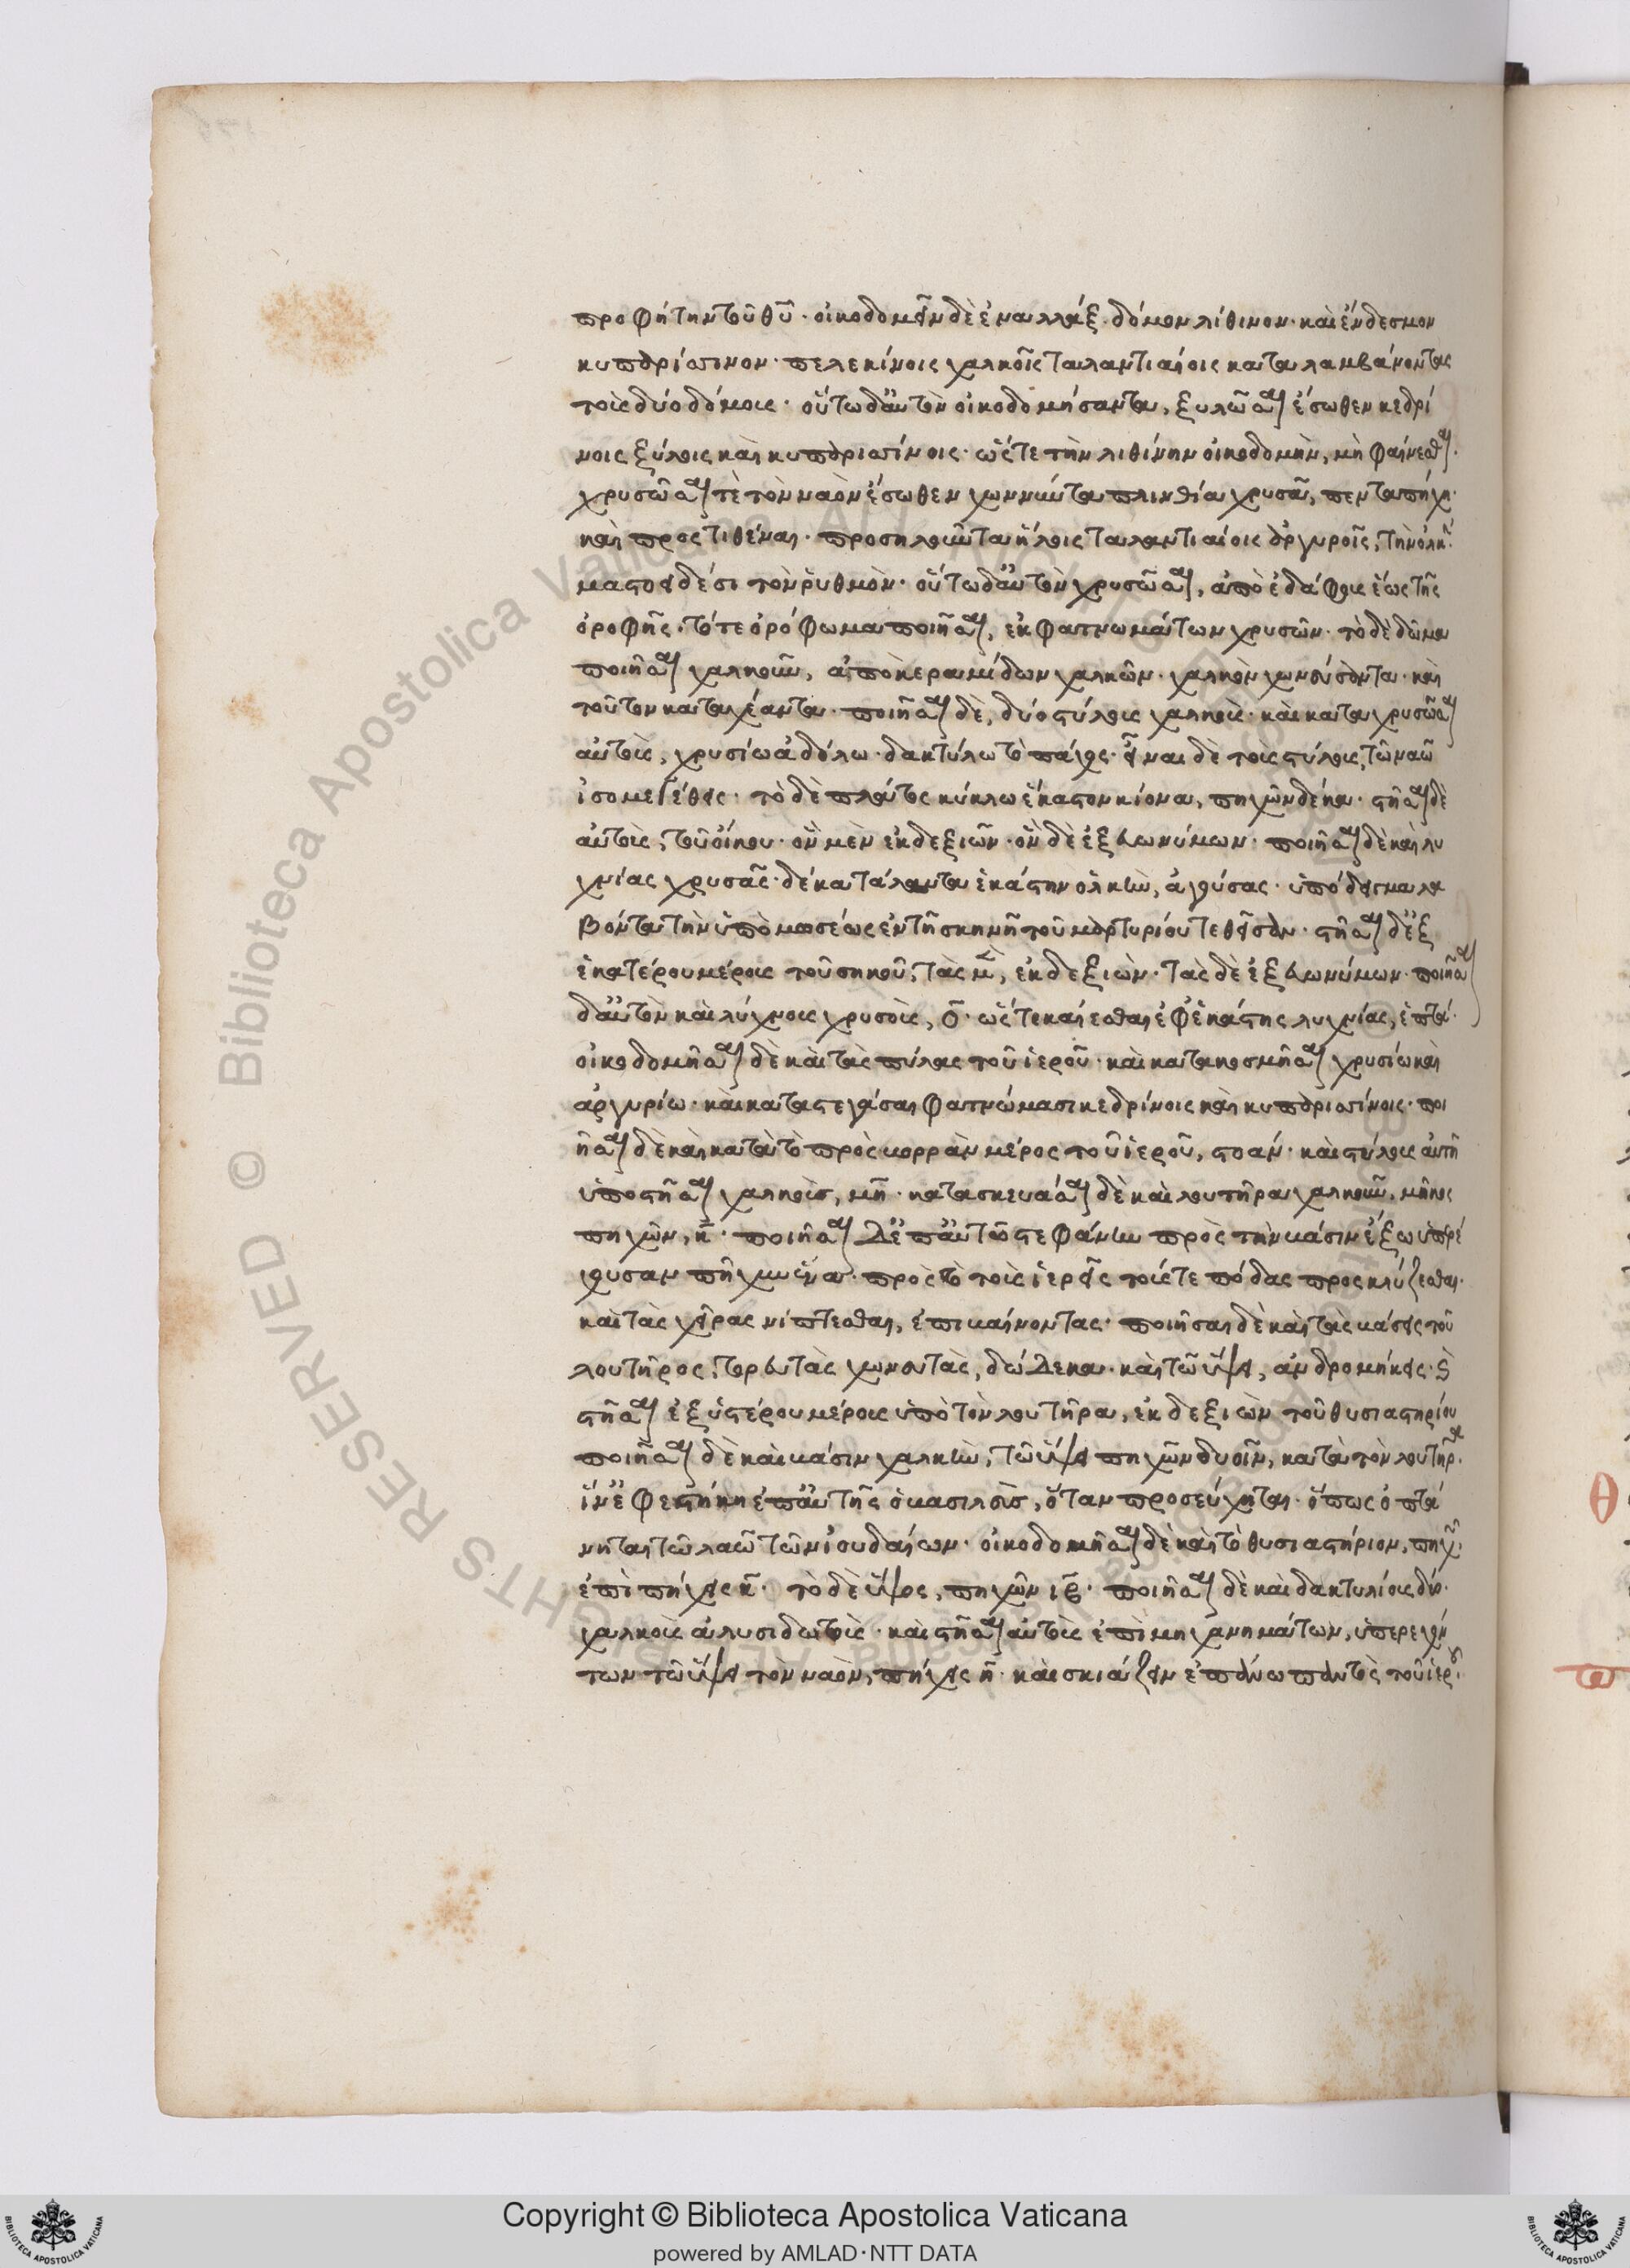 προφήτην τοῦ θῦ· οἰκοδομεῖν δὲ ἐναλλάξ· δόμον λίθινον· καὶ ἔνδεσμον
κυπαρίσσινον· πελεκίνοις χαλκοῖς ταλαντιαίοις καταλαμβάνοντας
τοὺς δύο δόμους· οὕτω δ' αὐτὸν οἰκοδομήσαντα, ξυλῶσαι ἔσωθεν κεδρί
νοις ξύλοις καὶ κυπαρισσίνοις· ὥστε τὴν λιθίνην οἰκοδομὴν, μὴ φαίνεσθαι·
χρυσῶσαί τε τὸν ναὸν ἔσωθεν χωννύντα πλινθία χρυσᾶ, πενταπήχη·
καὶ προστιθέναι· προσηλοῦντα ἥλοις ταλαντιαίοις ἀργυροῖς, τὴν ὁλκὴν·
μαστοειδέσι τὸν ῥυθμὸν· οὕτω δ' αὐτὸν χρυσῶσαι, ἀπὸ ἐδάφους ἕως τῆς
ὀροφῆς· τό τε ὀρόφωμα ποιῆσαι, ἐκ φατνωμάτων χρυσῶν· τὸ δὲ δῶμα
ποιῆσαι χαλκοῦν, ἀπὸ κεραμίδων χαλκῶν· χαλκὸν χωνεύσαντα· καὶ
τοῦτον καταχέαντα· ποιῆσαι δὲ, δύο στύλους χαλκοὺς· καὶ καταχρυσῶσαι
αὐτοὺς, χρυσίω ἀδόλω· δακτύλω τὸ πάχος· εἶναι δὲ τοὺς στύλους, τῶ ναῶ
ἰσομεγέθεις· τὸ δὲ πλάτος κύκλω ἕκαστον κίονα, πηχῶν δέκα· στῆσαι δὲ
αὐτοὺς, τοῦ οἴκου· ὃν μὲν ἐκ δεξιῶν· ὃν δὲ ἐξ εὐωνύμων· ποιῆσαι δὲ καὶ λυ
χνίας χρυσᾶς· δέκα τάλαντα ἑκάστην ὁλκὴν, ἀγούσας· ὑπόδειγμα λα
βόντα τὴν ὑπὸ μωσέως ἐν τῆ σκηνῆ τοῦ μαρτυρίου τεθεῖσαν· στῆσαι δ' ἐξ
ἑκατέρου μέρους τοῦ σηκοῦ, τὰς μὲν, ἐκ δεξιὼν· τὰς δὲ ἐξ εὐωνύμων· ποιῆσαι
δ' αὐτὸν καὶ λύχνους χρυσοὺς, ο· ὥστε καίεσθαι ἐφ' ἑκάστης λυχνίας, ἑπτά·
οἰκοδομῆσαι δὲ καὶ τὰς πύλας τοῦ ἱεροῦ· καὶ κατακοσμῆσαι χρυσίω καὶ
ἀργυρίω· καὶ καταστεγάσαι φατνώμασι κεδρίνοις καὶ κυπαρισσίνοις· ποι
ῆσαι δὲ καὶ κατὰ τὸ πρὸς βορρὰν μέρος τοῦ ἱεροῦ, στοάν· καὶ στύλους αὐτῆ
ὑποστῆσαι χαλκοὺς, μη· κατασκευάσαι δὲ καὶ λουτῆρα χαλκοῦν, μῆκος
πηχῶν, κ· ποιῆσαι δὲ ἐπ' αὐτῶ στεφάνην πρὸς τὴν βάσιν ἔξω ὑπερέ
χουσαν πῆχυν ἕνα· πρὸς τὸ τοὺς ἱερεῖς τούς τε πόδας προσκλύζεσθαι·
καὶ τὰς χεῖρας νίπτεσθαι, ἐπιβαίνοντας· ποιῆσαι δὲ καὶ τὰς βάσεις τοῦ
λουτῆρος, τορευτὰς χωνευτὰς, δώδεκα· καὶ τῶ ὕψει, ἀνδρομήκεις·
στῆσαι ἐξ ὑστέρου μέρους ὑπὸ τὸν λουτῆρα, ἐκ δεξιῶν τοῦ θυσιαστηρίου
ποιῆσαι δὲ καὶ βάσιν χαλκὴν, τῶ ὕψει πηχῶν δυοῖν, κατὰ τὸν λουτῆρα·
ἵν' ἐφεστήκη ἐπ' αὐτῆς ὁ βασιλεὺς, ὅταν προσεύχηται· ὅπως ὀπτά
νηται τῶ λαῶ τῶν ἰουδαίων· οἰκοδομῆσαι δὲ καὶ τὸ θυσιαστήριον, πηχῶν·
ἐπὶ πήχεις κ· τὸ δὲ ὕψος, πηχῶν ιβ· ποιῆσαι δὲ καὶ δακτυλίους δύο·
χαλκοὺς ἁλυσιδωτοὺς· καὶ στῆσαι αὐτοὺς ἐπὶ μηχανημάτων, ὑπερεχόν
των τῶ ὕψει τὸν ναὸν, πήχεις η· καὶ σκιάζειν ἐπάνω παντὸς τοῦ ἱεροῦ·